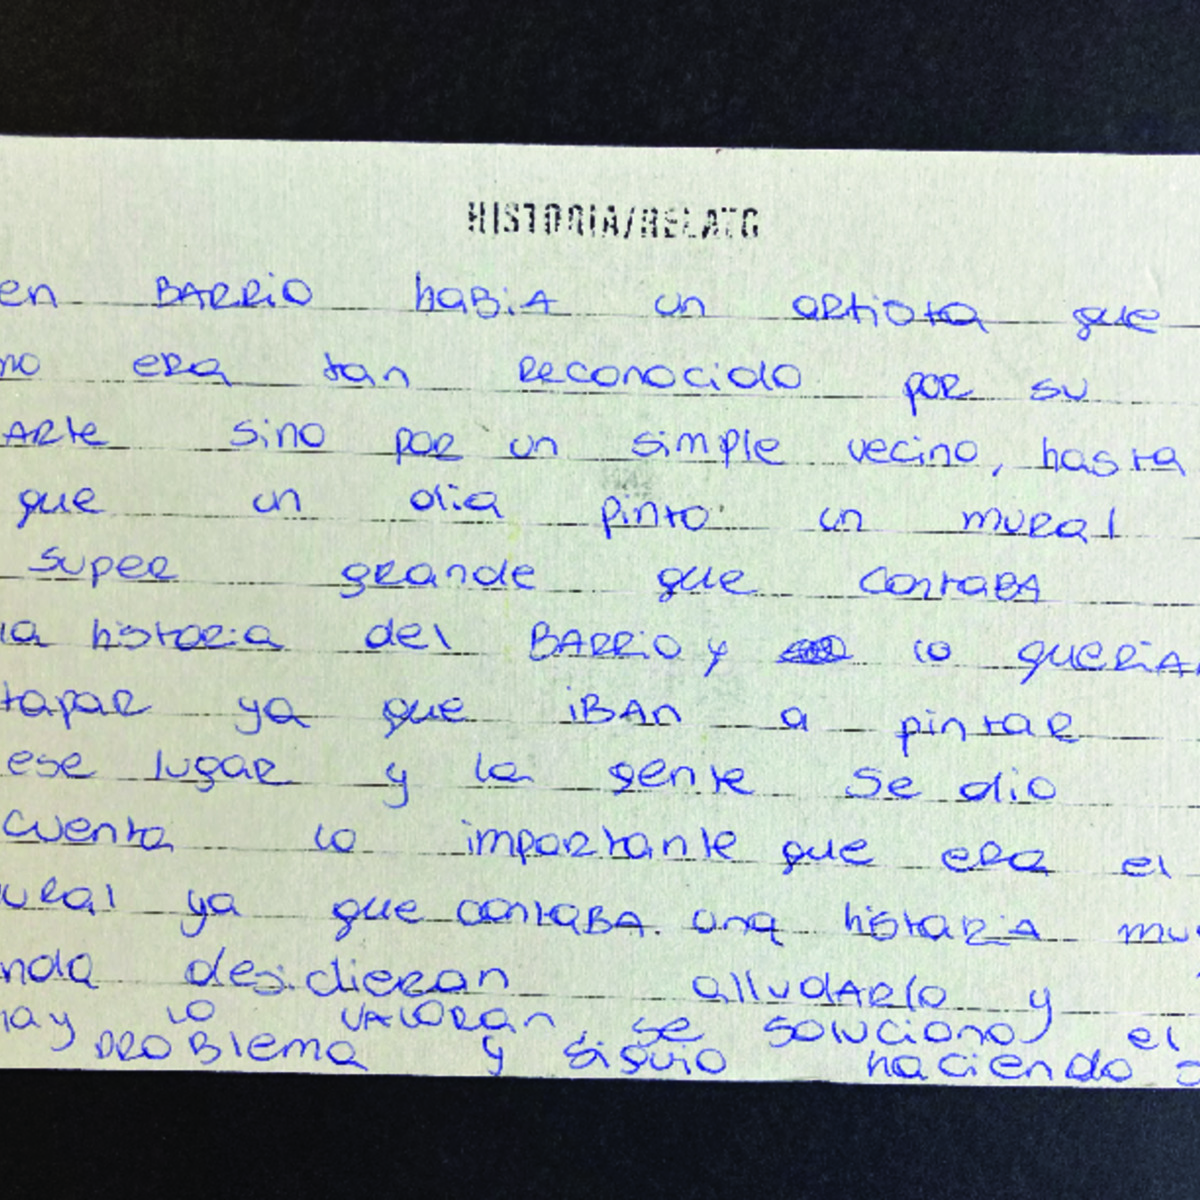 HISTORIA/RELATO
en BARRIO haBiA un artista que
no era tan reconocido por su
ARte sino por un simple vecino, hasta
que un dia pinto un mural
super grande que contaBA
la historia del BARRIO y lo querian
tapar ya que iBAn a pintar
ese lugar y la gente se dio
cuenta lo importante que era el
ural ya que contaBA una historia mu
nda desidieran alludarlo y
hay lo valoran, se soluciono el
problema y siguio haciendo